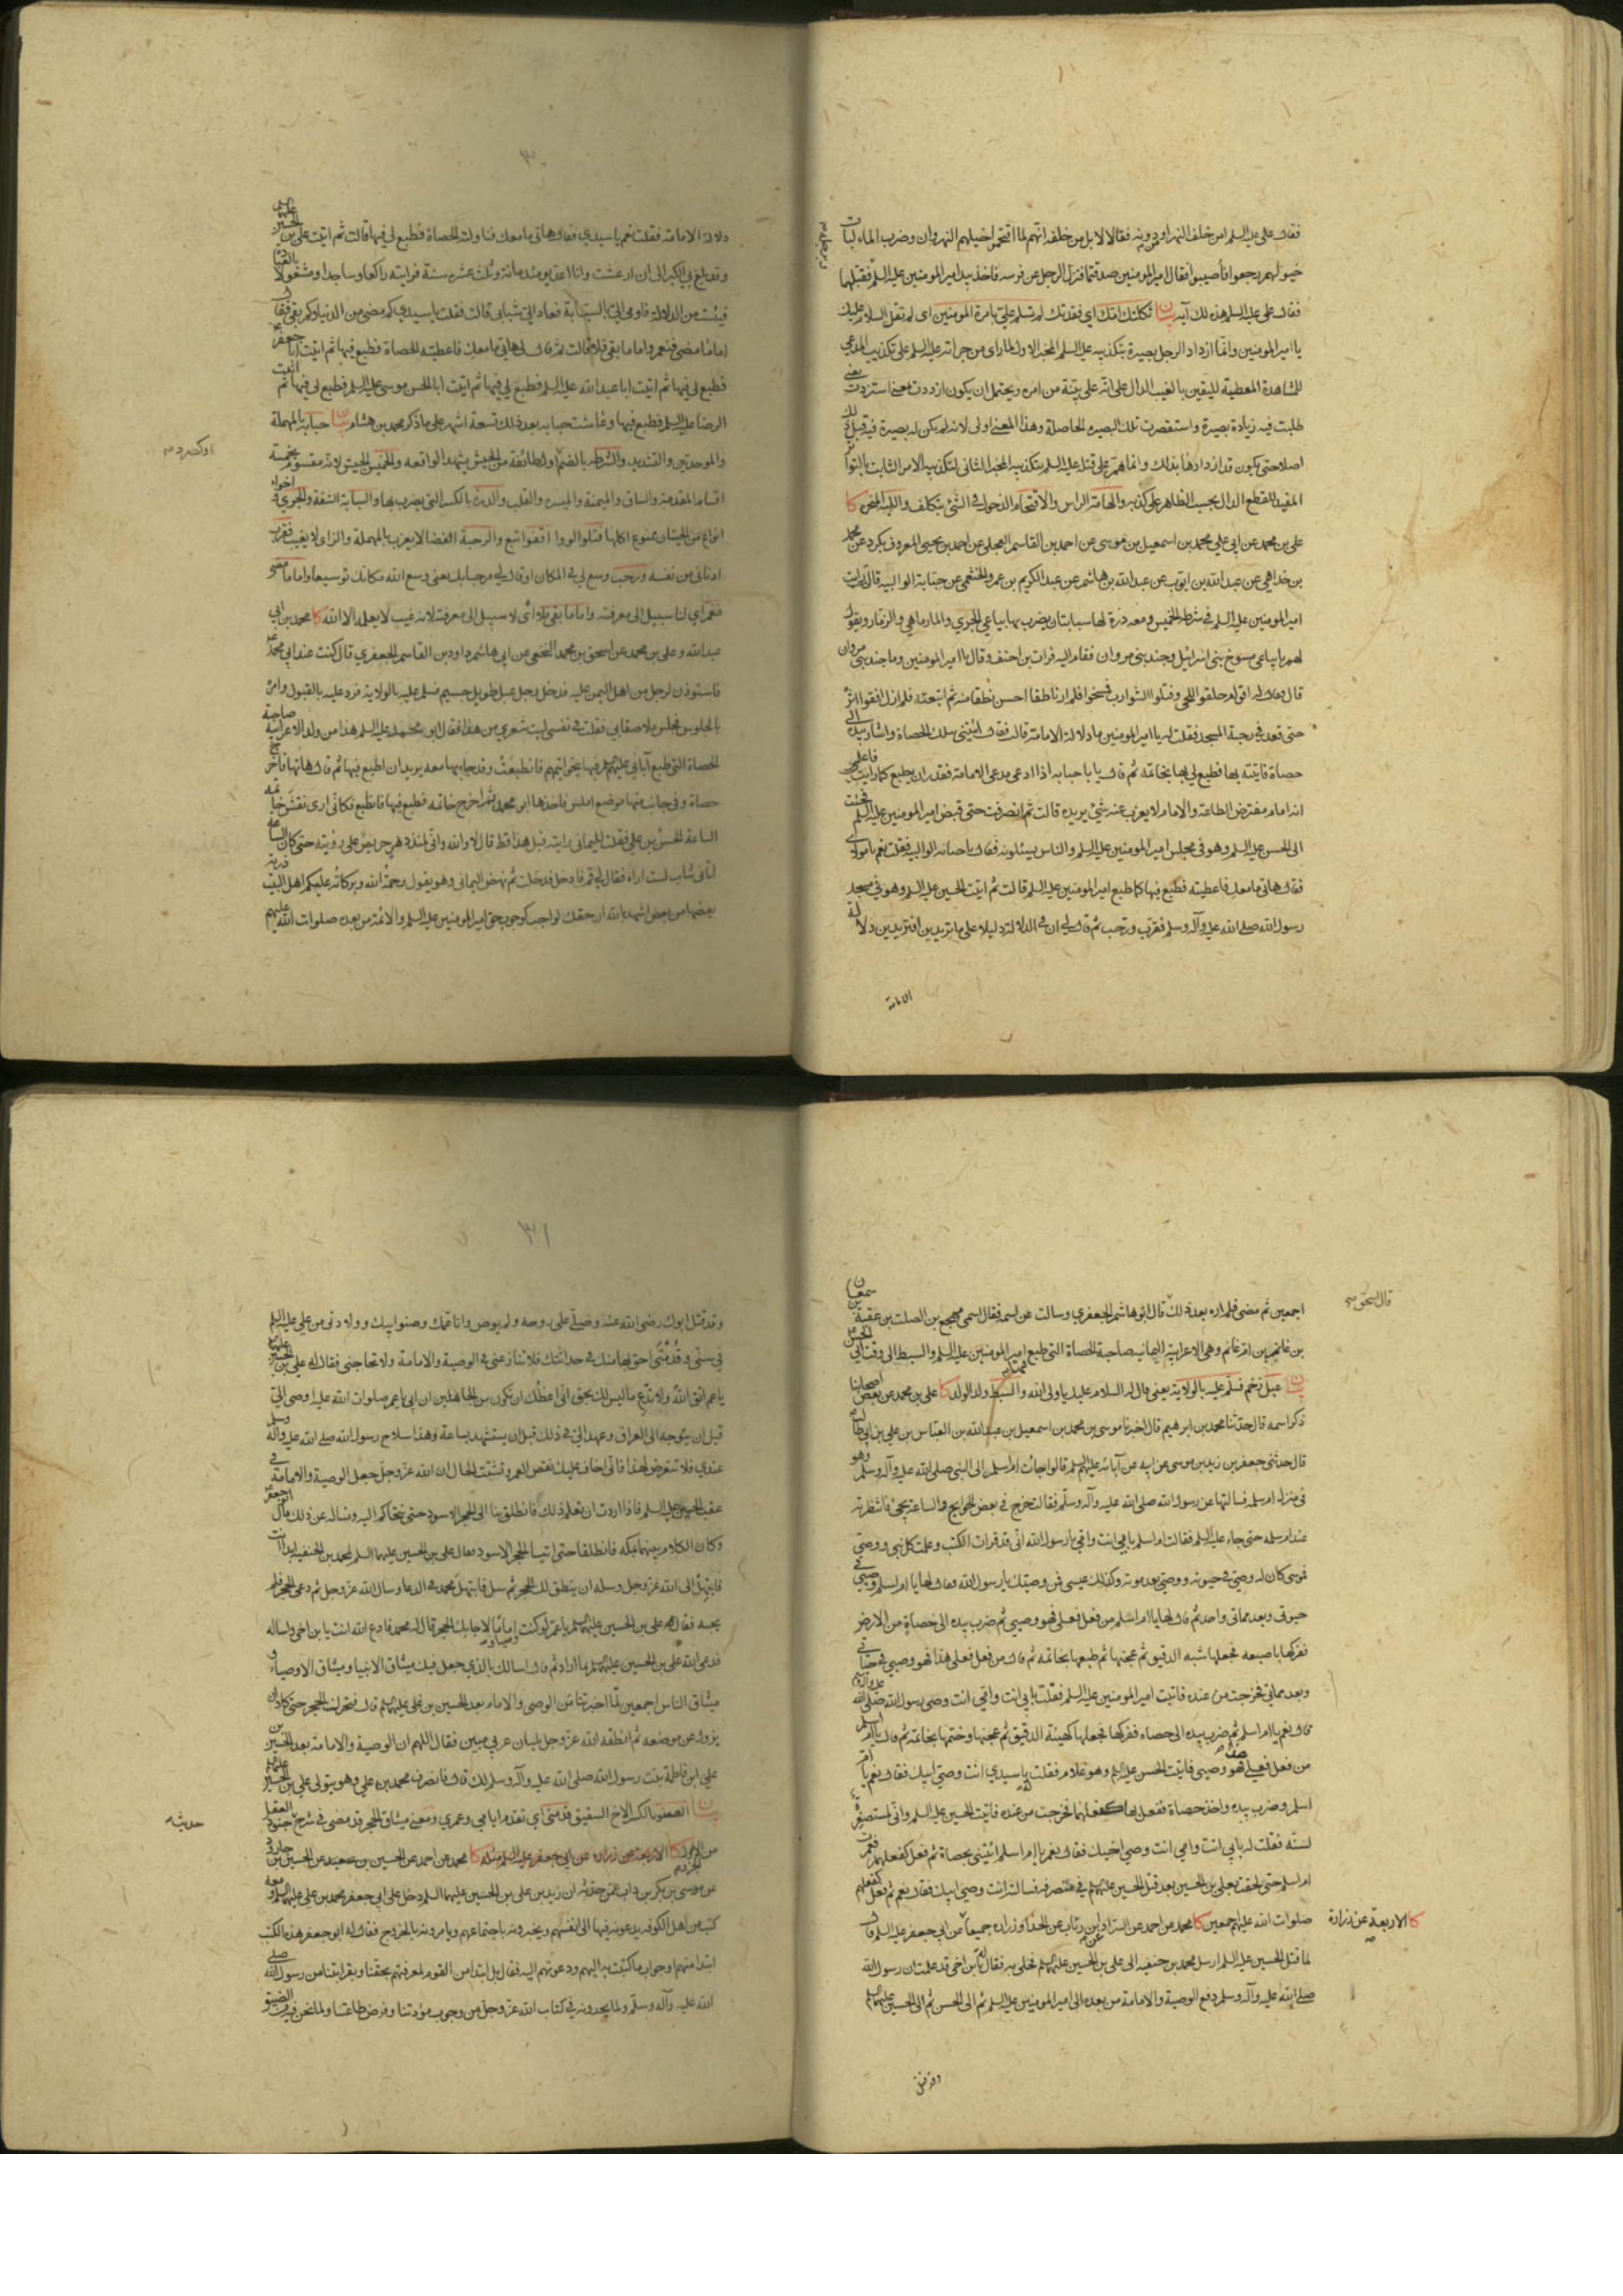 فقال علي عليه السلم امن خلف النهر او دونه فقالا لا بل من خلفه انهم لما اقتحموا خيلهم النهروان وضرب الماء لبات
خيولهم رجعوا فاصيبوا فقال امير المومنين صدقتما فنزل الرجل عن فرسه فاخذ بيد امير المومنين عليه السلم فقبلها
فقال علي عليه السلم هذه لك آية بيان ثكلتك امك اي فقدتك لم تسلم علي بامرة المومنين اى لم تقل السلام عليك
يا امير المومنين وانما ازداد الرجل بصيرة بتكذيبه عليه السلم المخبر الاول لما راى من جراته عليه السلم على تكذيب المدعي
للمشاهدة المعطية لليقين بالغيب الدال على انه على بينة من امره ويحتمل ان يكون ازددت بمعنى استزدت يعنى
طلبت فيه زيادة بصيرة واستقصرت تلك البصيرة الحاصلة وهذا المعنى اولى لانه لم يكن له بصيرة فيه قبل ذلك
اصلا حتى يكون قد ازدادها بذلك وانما هم على قتله عليه السلم بتكذيبه المخبر الثانى لتكذيبه الامر الثابت بالتواتر
المفيد للقطع الدال بحسب الظاهر على كذبه والهامة الراس والاقتحام الدخول في الشئ بتكلف واللبة المنحر كا
علي بن محمد عن ابي علي محمد بن اسمعيل بن موسى عن احمد بن القاسم العجلي عن احمد بن يحيى المعروف بكرد عن محمد
بن خداهي عن عبد الله بن ايوب عن عبد الله بن هاشم عن عبد الكريم بن عمرو الخثعمي عن حبابة الوالبية قالت رايت
امير المومنين عليه السلم في شرطة الخميس ومعه درة لها سبابتان يضرب بها بياعي الجري والمارماهي والزمار ويقول
لهم يا بياعي مسوخ بني اسرائيل وجند بني مروان فقام اليه فرات بن احنف وقال يا امير المومنين وما جند بني مروان
قال فقال له اقوام حلقوا اللحى وفتلوا الشوارب فمسخوا فلم ار ناطقا احسن نطقا منه ثم اتبعته فلم ازل اقفوا اثره
حتى قعد في رحبة المسجد فقلت له يا امير المومنين ما دلالة الامامة قالت فقال ائتيني بتلك الحصاة واشار بيده الى
حصاة فاتيته بها فطبع لي بها بخاتمه ثم قال لي يا حبابة اذا ادعى مدعى الامامة فقدر ان يطبع كما رايت فاعلمي
انه امام مفترض الطاعة والامام لا يعزب عنه شئ يريده قالت ثم انصرفت حتى قبض امير المومنين عليه السلم فجئت
الى الحسن عليه السلم وهو في مجلس امير المومنين عليه السلم والناس يسئلونه فقال يا حبابة الوالبية فقلت نعم يا مولاى
فقال هاتي ما معك فاعطيته فطبع فيها كما طبع امير المومنين عليه السلم قالت ثم اتيت الحسين عليه السلم وهو في مسجد
رسول الله صلى الله عليه وآله وسلم فقرب ورحب ثم قال لي ان في الدلالة دليلا على ما تريدين افتريدين دلالة
الامامة
٣٠
دلالة الامامة فقلت نعم يا سيدي فقال هاتي ما معك فناولته الحصاة فطبع لي فيها قالت ثم اتيت علي بن الحسين عليهما السلم
وقد بلغ بي الكبر الى ان ارعشت وانا اعد يومئذ مائة وثلث عشر سنة فرايته راكعا وساجدا ومشغولا بالعبادة
فيئست من الدلالة فاومى الي بالسبابة فعاد الي شبابي قالت فقلت يا سيدي كم مضى من الدنيا وكم بقي فقال
اما ما مضى فنعم واما ما بقي فلا قالت ثم قال لي هاتي ما معك فاعطيته الحصاة فطبع فيها ثم اتيت ابا جعفر
فطبع لي فيها ثم اتيت ابا عبد الله عليه السلم فطبع لي فيها ثم اتيت ابا الحسن موسى عليه السلم فطبع لي فيها ثم اتيت
الرضا عليه السلم فطبع فيها وعاشت حبابة بعد ذلك تسعة اشهر على ما ذكر محمد بن هشام بيان حبابة بالمهملة
والموحدتين والتشديد والشرطة بالضم اول طائفة من الجيش يشهد الواقعة والخميس الجيش لانه مقسوم بخمسة
اقسام المقدمة والساق والميمنة والميسرة والقلب والدرة بالكسر التي يضرب بها والسبابة الشقة والجري
انواع من الحيتان ممنوع اكلها فتلوا لووا اقفوا اتبع والرحبة الفضا لا يعزب بالمهملة والزاى لا يغيب فقرب
ادناني من نفسه ورحب وسع لي في المكان او قال لي مرحبا بك يعني وسع الله مكانك توسيعا واما ما مضى
فنعم اي لنا سبيل الى معرفته واما ما بقي فلا اى لا سبيل الى معرفته لانه غيب لا يعلم الا الله كا محمد بن ابي
عبد الله وعلي بن محمد عن اسحق بن محمد النخعي عن ابي هاشم داود بن القاسم الجعفري قال كنت عند ابي محمد
فاستوذن لرجل من اهل اليمن عليه فدخل رجل عبل طويل جسيم فسلم عليه بالولاية فرد عليه بالقبول وامره
بالجلوس فجلس ملاصقا بي فقلت في نفسي ليت شعري من هذا فقال ابو محمد عليه السلم هذا من ولد الاعرابية صاحبة
الحصاة التي طبع آبائي عليهم السلم فيها بخواتيمهم فانطبعت وقد جاء بها معه يريد ان اطبع فيها ثم قال هاتها فاخرج
حصاة وفي جانب منها موضع املس فاخذها ابو محمد ثم اخرج خاتمه فطبع فيها فانطبع فكاني ارى نقش خاتمه
الساعة الحسن بن علي فقلت لليماني رايته قبل هذا قط قال لا والله واني لمنذ دهر حريص على رؤيته حتى كان الساعة
اتاني شاب لست اراه فقال لي قم فادخل فدخلت ثم نهض اليماني وهو يقول رحمة الله وبركاته عليكم اهل البيت ذرية
بعضها من بعض اشهد بالله ان حقك لواجب كوجوب حق امير المومنين عليه السلم والائمة من بعده صلوات الله عليهم
قال اسحق
اجمعين ثم مضى فلم اره بعد ذلك قال ابو هاشم الجعفري وسالت عن اسمه فقال اسمي مهجع بن الصلت بن عقبة بن سمعان
بن غانم بن ام غانم وهي الاعرابية اليمانية صاحبة الحصاة التي طبع فيها امير المومنين عليه السلم والسبط الى وقت ابي الحسن
بيان عبل ضخم فسلم عليه بالولاية يعني قال له السلام عليك يا ولي الله والسبط ولد الولد كا علي بن محمد عن بعض اصحابنا
ذكر اسمه قال حدثنا محمد بن ابرهيم قال اخبرنا موسى بن محمد بن اسمعيل بن عبيد الله بن العباس بن علي بن ابي طالب
قال حدثني جعفر بن زيد بن موسى عن ابيه عن آبائه عليهم السلم قالوا جائت ام اسلم الى النبي صلى الله عليه وآله وسلم وهو
في منزل ام سلمة فسالتها عن رسول الله صلى الله عليه وآله وسلم فقالت خرج في بعض الحوايج والساعة يجئ فانتظرته
عند ام سلمة حتى جاء عليه السلم فقالت ام اسلم بابي انت وامي يا رسول الله اني قد قرات الكتب وعلمت كل نبي ووصي
فموسى كان له وصي في حيوته ووصي بعد موته وكذلك عيسى فمن وصيك يا رسول الله فقال لها يا ام اسلم وصيي في
حيوتي وبعد مماتي واحد ثم قال لها يا ام اسلم من فعل فعلي فهو وصيي ثم ضرب بيده الى حصاة من الارض
ففركها باصبعه فجعلها شبه الدقيق ثم عجنها ثم طبعها بخاتمه ثم قال من فعل فعلي هذا فهو وصيي في حياتي
وبعد مماتي فخرجت من عنده فاتيت امير المومنين عليه السلم فقلت بابي انت وامي انت وصي رسول الله صلى الله عليه وآله وسلم
قال نعم يا ام اسلم ثم ضرب بيده الى حصاه ففركها فجعلها كهيئة الدقيق ثم عجنها وختمها بخاتمه ثم قال يا ام اسلم
من فعل فعلي هذا فهو وصيي فاتيت الحسن عليه السلم وهو غلام فقلت له يا سيدي انت وصي ابيك فقال نعم يا ام
اسلم وضرب بيده واخذ حصاة ففعل بها كفعلهما فخرجت من عنده فاتيت الحسين عليه السلم واني لمستصغرة
لسنه فقلت له بابي انت وامي انت وصي اخيك فقال نعم يا ام اسلم ائتيني بحصاة ثم فعل كفعلهم فعمرت
ام اسلم حتى لحقت بعلي بن الحسين بعد قتل الحسين عليه السلم في منصرفه فسالته انت وصي ابيك فقال نعم ثم فعل كفعلهم
صلوات الله عليهم اجمعين كا محمد عن احمد عن السراد عن ابن رئاب عن الحذاء وزرارة جميعا عن ابي جعفر عليه السلم قال
كا الاربعة عن زرارة
لما قتل الحسين عليه السلم ارسل محمد بن حنفية الى علي بن الحسين عليهما السلم فخلى به فقال له يا بن اخي قد علمت ان رسول الله
صلى الله عليه وآله وسلم دفع الوصية والامامة من بعده الى امير المومنين عليه السلم ثم الى الحسن ثم الى الحسين عليهما السلم
وقد قتل
٣١
وقد قتل ابوك رضي الله عنه وصلى على روحه ولم يوص وانا عمك وصنو ابيك وولادتي من علي عليه السلم
في سني وقدمتي احق بها منك في حداثتك فلا تنازعني في الوصية والامامة ولا تحاجني فقال له علي بن الحسين عليهما السلم
يا عم اتق الله ولا تدع ما ليس لك بحق اني اعظك ان تكون من الجاهلين ان ابي يا عم صلوات الله عليه اوصى الي
قبل ان يتوجه الى العراق وعهد الي في ذلك قبل ان يستشهد بساعة وهذا سلاح رسول الله صلى الله عليه وآله وسلم
عندي فلا تتعرض لهذا فاني اخاف عليك نقص العمر وتشتت الحال ان الله عز وجل جعل الوصية والامامة في
عقب الحسين عليه السلم فاذا اردت ان تعلم ذلك فانطلق بنا الى الحجر الاسود حتى نتحاكم اليه ونساله عن ذلك قال ابو جعفر
وكان الكلام بينهما بمكة فانطلقا حتى اتيا الحجر الاسود فقال علي بن الحسين عليهما السلم لمحمد بن الحنفية ابدا انت
فابتهل الى الله عز وجل وسله ان ينطق لك الحجر ثم سل فابتهل محمد في الدعا وسال الله عز وجل ثم دعى الحجر فلم
يجبه فقال علي بن الحسين عليهما السلم يا عم لو كنت وصيا واماما لاجابك الحجر قال له محمد فادع الله انت يا بن اخي واساله
فدعى الله علي بن الحسين عليهما السلم بما اراد ثم قال اسالك بالذي جعل فيك ميثاق الانبيا وميثاق الاوصياء و
ميثاق الناس اجمعين لما اخبرتنا من الوصي والامام بعد الحسين بن علي عليهما السلم قال فتحرك الحجر حتى كاد ان
يزول عن موضعه ثم انطقه الله عز وجل بلسان عربي مبين فقال اللهم ان الوصية والامامة بعد الحسين بن
علي ابن فاطمة بنت رسول الله صلى الله عليه وآله وسلم لك قال فانصرف محمد بن علي وهو يتولى علي بن الحسين عليهما السلم
بيان الصنو بالكسر الاخ الشقيق قدمتي اي تقدم ايامي وعمري ومعنى ميثاق الحجر قد مضى في شرح جنود العقل
من الاول كا الاربعة عن زرارة عن ابي جعفر عليه السلم مثله كا محمد عن احمد عن الحسين بن سعيد عن الحسين بن جارود
عن موسى بن بكر بن داب عمن حدثه ان زيد بن علي بن الحسين عليهما السلم دخل على ابي جعفر محمد بن علي عليهما السلم ومعه
كتب من اهل الكوفة يدعونه فيها الى انفسهم ويخبرونه باجتماعهم ويامرونه بالخروج فقال له ابو جعفر هذه الكتب
ابتدا منهم او جواب ما كتبت به اليهم ودعوتهم اليه فقال بل ابتدا من القوم لمعرفتهم بحقنا وبقرابتنا من رسول الله صلى
الله عليه وآله وسلم ولما يجدونه في كتاب الله عز وجل من وجوب مودتنا وفرض طاعتنا ولما نحن فيه من الضيق